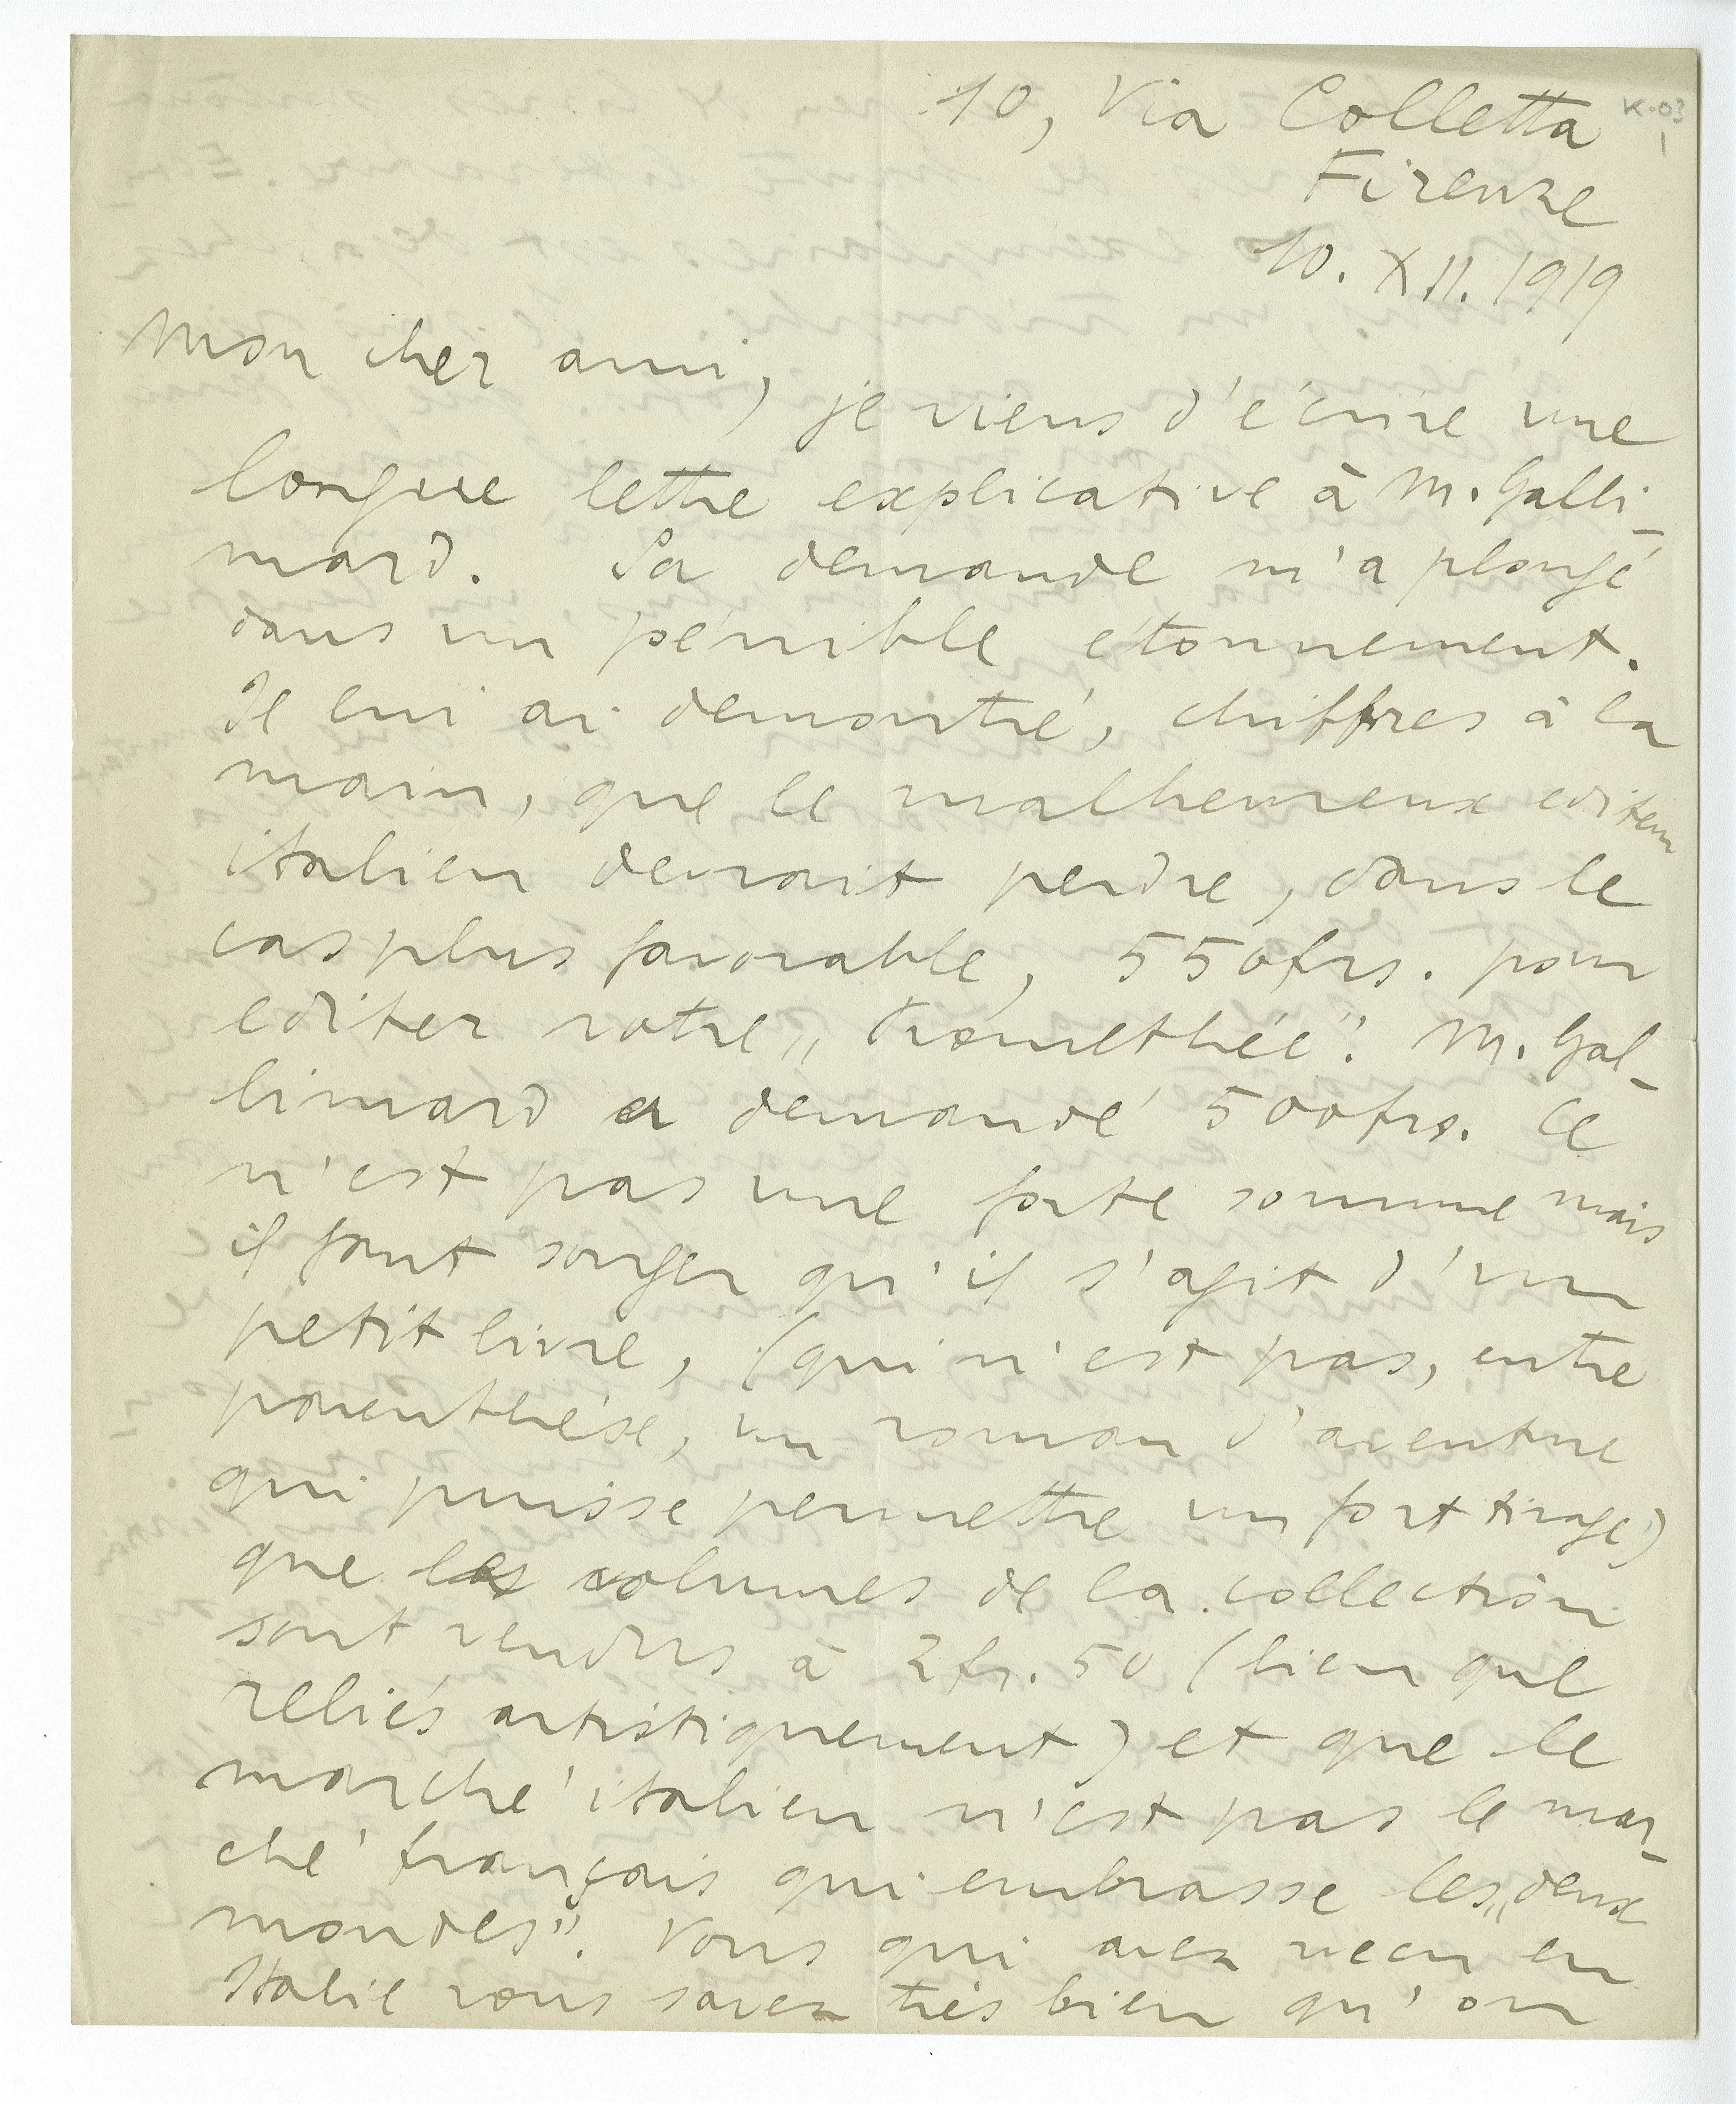 10, Via Colletta
K.03
1
Firenze
10. XII. 1919
Mon cher ami,
je viens d'écrire une
longue lettre explicative à M. Galli-
mard. Sa demande m'a plongé
dans un pénible étonnement.
Je lui ai demontré, chiffres à la
main, que le malheureux editeur
italien devrait perdre, dans le
cas plus favorable, 550 frs. pour
editer votre „Promethée". M. Gal-
limard a demandé 500 frs. Ce
n'est pas une forte somme mais
il faut songer qu'il s'agit d'un
petit livre, (qui n'est pas, entre
parenthése, un roman d'aventure
qui puisse permettre un fort tirage)
que les volumes de la collection
sont vendus à 2 fr. 50 (bien que
reliés artistiquement) et que le
marché italien n'est pas le mar-
ché français qui embrasse les „deux
mondes". Vous qui avez vecu en
Italie vous savez très bien qu'on